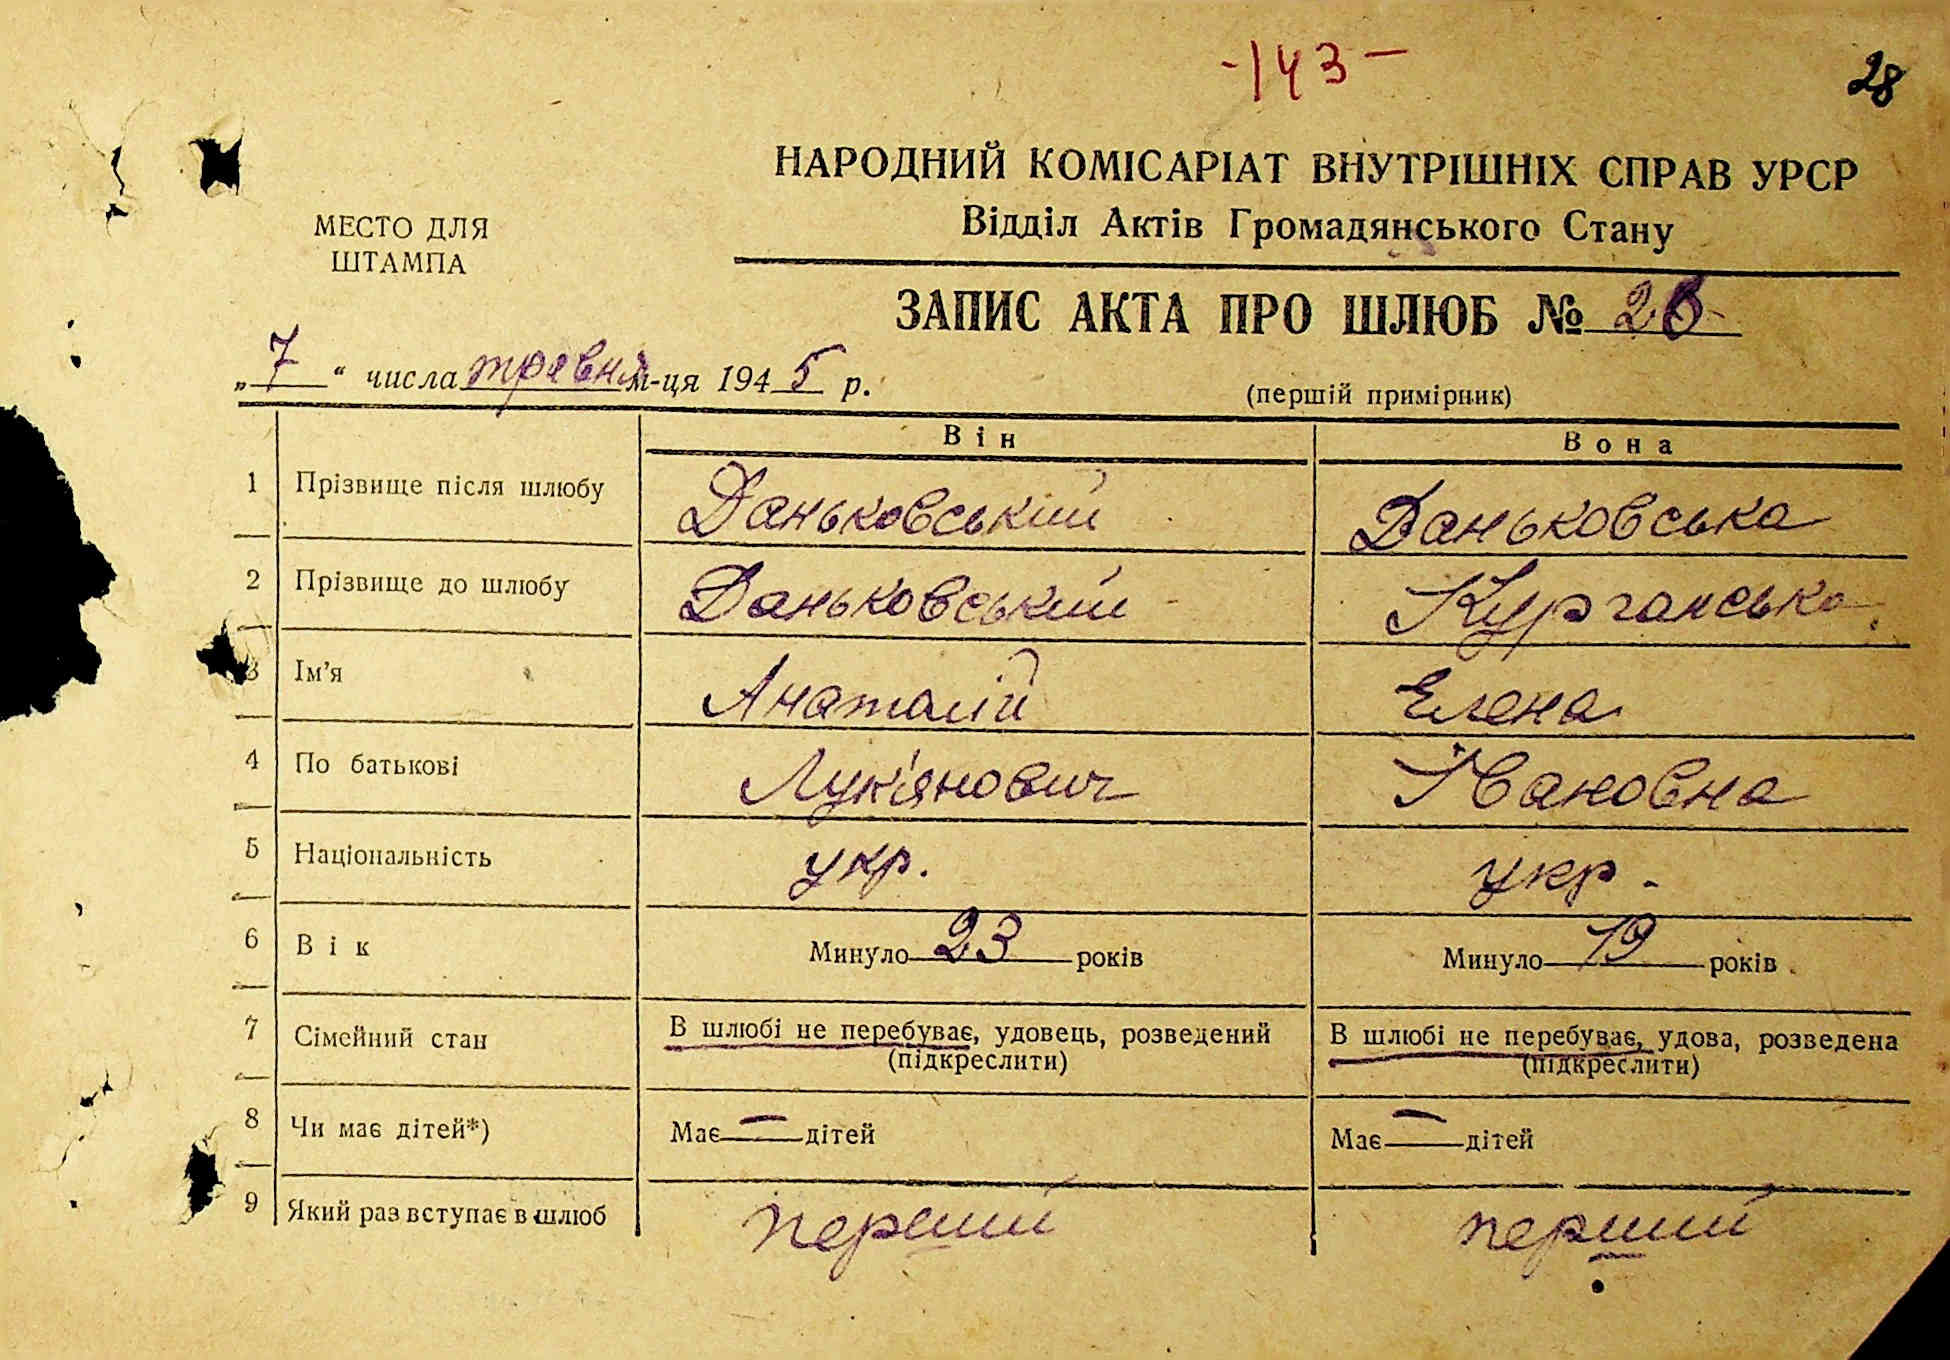 -143-
28
НАРОДНИЙ КОМІСАРІАТ ВНУТРІШНІХ СПРАВ УРСР
Відділ Актів Громадянського Стану
МЕСТО ДЛЯ
ШТАМПА
ЗАПИС АКТА ПРО ШЛЮБ №
„7“ числа травня м-ця 1945 р.
(першій примірник)
Він Вона
1 Прізвище після шлюбу Даньковський Даньковська
2 Прізвище до шлюбу Даньковський Курганська
3 Ім'я Анатолій Елена
4 По батькові Лук'янович Івановна
5 Національність укр. укр.
6 Вік Минуло 23 років Минуло 19 років
7 Сімейний стан В шлюбі не перебуває, удовець, розведений В шлюбі не перебуває, удова, розведена
(підкреслити) (підкреслити)
8 Чи має дітей*) Має — дітей Має — дітей
9 Який раз вступає в шлюб перший перший